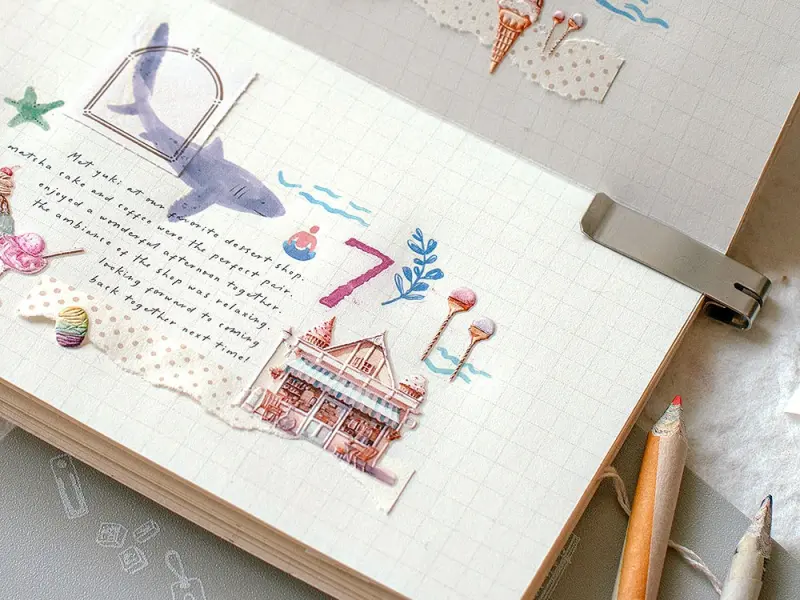 Met yuki at our favorite dessert shop.
matcha cake and coffee were the perfect pair.
enjoyed a wonderful afternoon together.
the ambiance of the shop was relaxing.
looking forward to coming
back together next time!
7